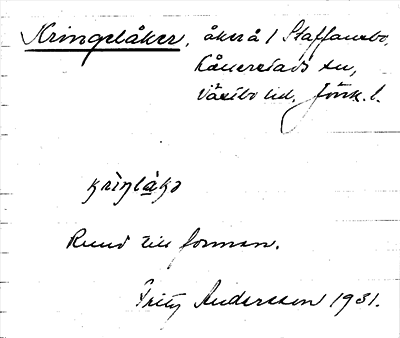 Kringelåker, åker å 1 Staffansbo,
Kånerstads sn,
Västbo hd, Jönk. l.
krìŋlåkə
Rund till formen.
Fritz Andersson 1931.